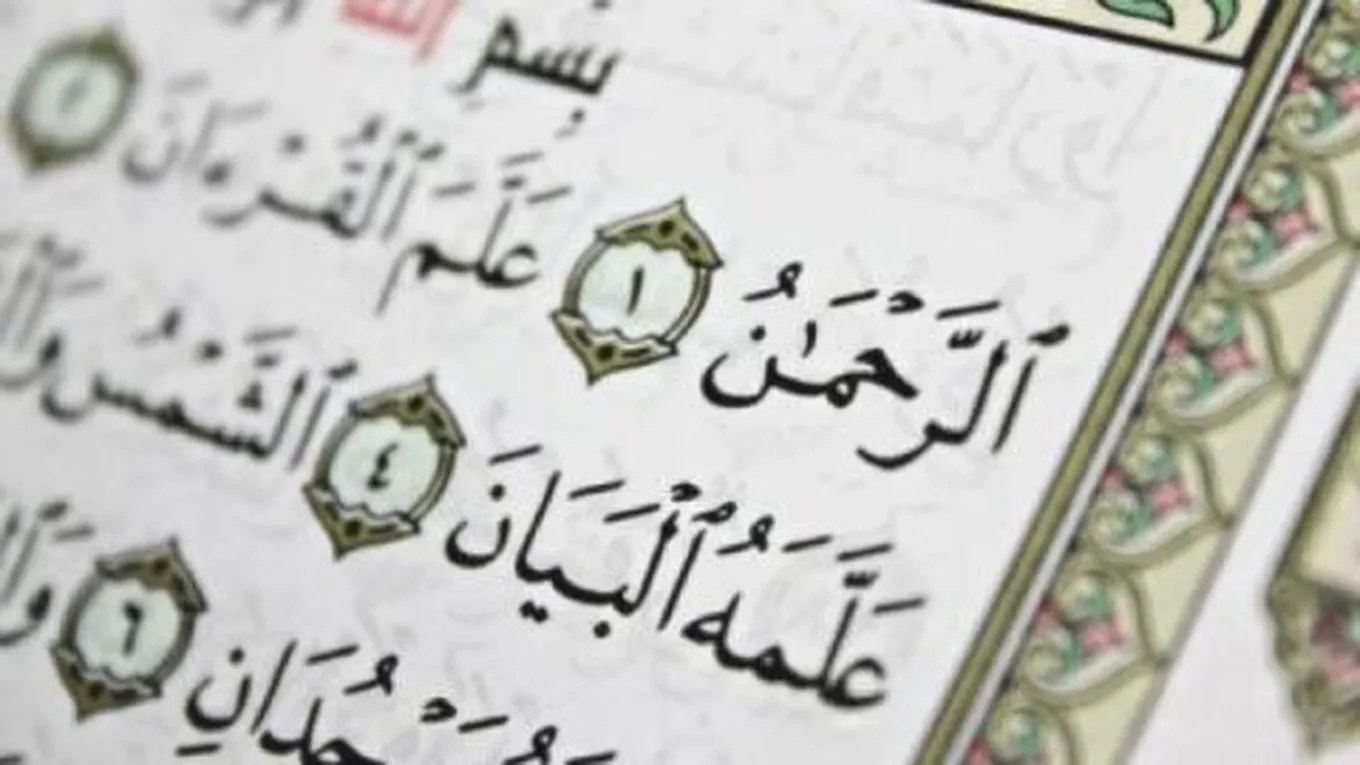 بِسْمِ
ٱلرَّحْمَٰنُ ١ عَلَّمَ ٱلْقُرْءَانَ ٢
عَلَّمَهُ ٱلْبَيَانَ ٤ ٱلشَّمْسُ
يَسْجُدَانِ ٦